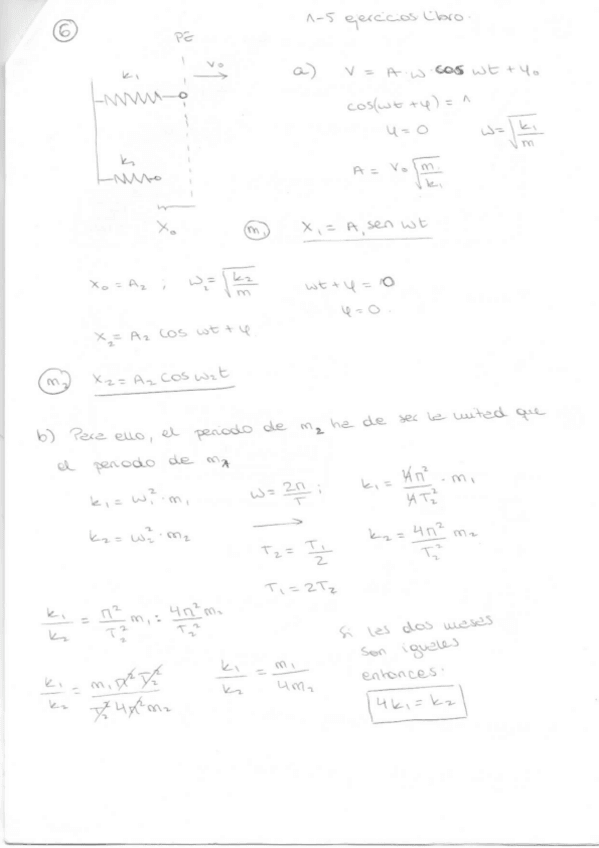 6
1-5 ejercicios libro.
PE
V₀
k₁
k₂
X₀
a) V = A·ω·cos ωt+φ₀
cos(ωt+φ) = 1
φ = 0 ω = √(k₁/m)
A = V₀ √(m/k₁)
m₁ X₁ = A₁ sen ωt
X₀ = A₂ ; ω₂ = √(k₂/m) ωt+φ = 0
φ = 0.
X₂ = A₂ cos ωt+φ
m₂ X₂ = A₂ cos ω₂t
b) Para ello, el periodo de m₂ ha de ser la mitad que
el periodo de m₁
k₁ = ω₁²·m₁ ω = 2π/T ; k₁ = 4π²/4T₂² · m₁
k₂ = ω₂²·m₂ → T₂ = T₁/2 k₂ = 4π²/T₂² m₂
T₁ = 2T₂
k₁/k₂ = π²/T₂² m₁ : 4π²m₂/T₂²
k₁/k₂ = m₁π²T₂²/T₂²4π²m₂ k₁/k₂ = m₁/4m₂
Si las dos masas
son iguales
entonces.
4k₁ = k₂